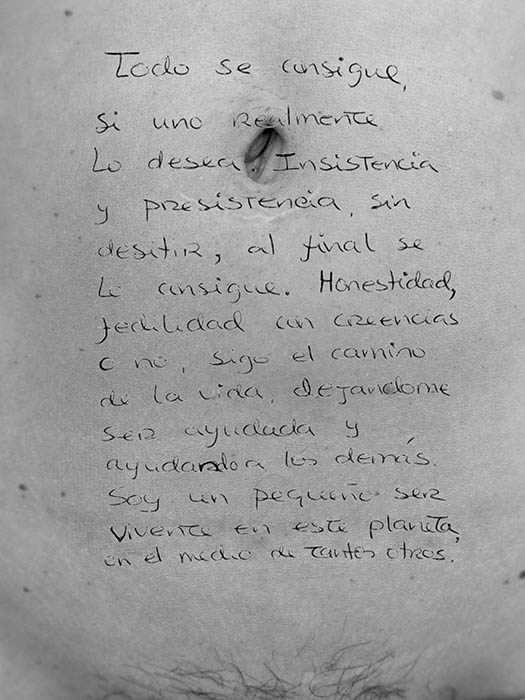 Todo se consigue,
si uno realmente
lo desea. Insistencia
y presistencia, sin
desitir, al final se
lo consigue. Honestidad,
fedilidad con creencias
o no, sigo el camino
de la vida, dejandome
ser ayudada y
ayudando a los demás.
Soy un pequeño ser
vivente en este planeta,
en el medio de tantos otros.